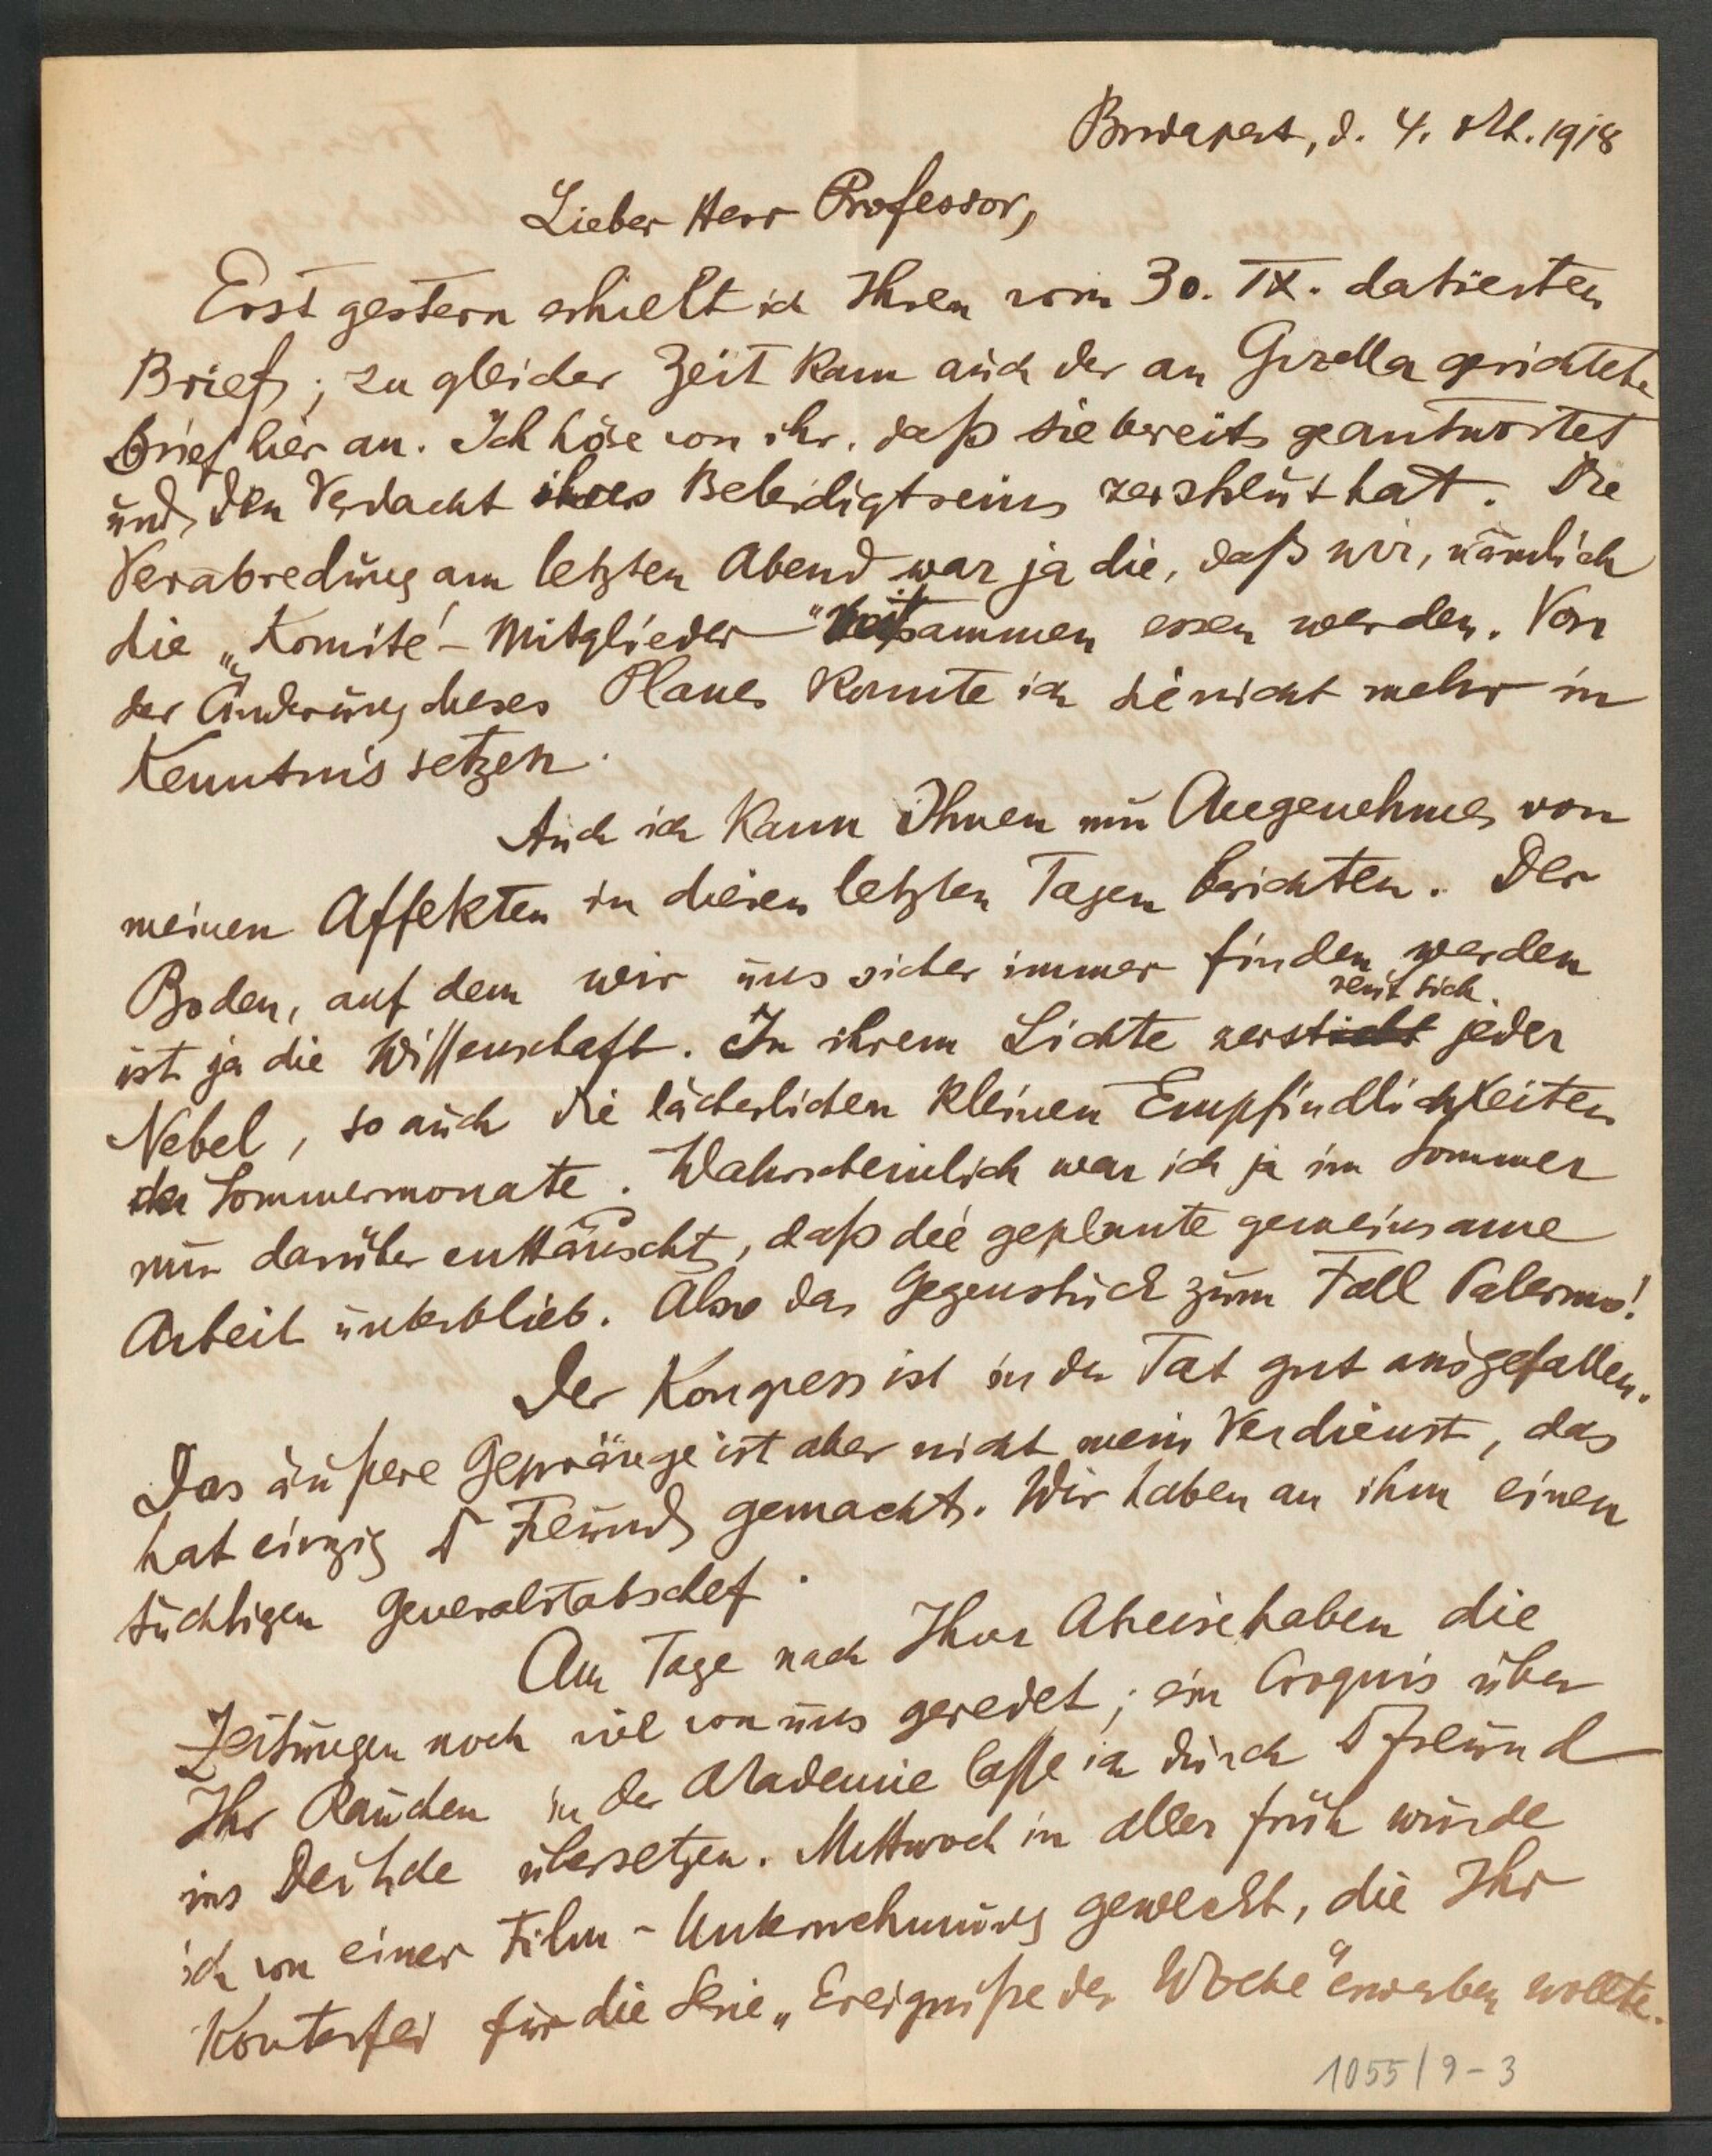 Budapest, d. 4. Okt. 1918
Lieber Herr Professor,
Erst gestern erhielt ich Ihren vom 30. IX. datierten
Brief; zu gleicher Zeit kam auch der an Gizella gerichtete
Brief hier an. Ich höre von ihr, daß sie bereits geantwortet
und den Verdacht ihres Beleidigtseins zerstreut hat. Die
Verabredung am letzten Abend war ja die, daß wir, nämlich
die „Komité-Mitglieder" beisammen essen werden. Von
der Änderung dieses Planes konnte ich sie nicht mehr in
Kenntnis setzen.
Auch ich kann Ihnen nur Angenehmes von
meinen Affekten in diesen letzten Tagen berichten. Der
Boden, auf dem wir uns sicher immer finden werden
ist ja die Wissenschaft. In ihrem Lichte zerstreut sich jeder
Nebel, so auch die lächerlichen kleinen Empfindlichkeiten
der Sommermonate. Wahrscheinlich war ich ja im Sommer
nur darüber enttäuscht, daß die geplante gemeinsame
Arbeit unterblieb. Also das Gegenstück zum Fall Palermo!
Der Kongress ist in der Tat gut ausgefallen.
Das äußere Gepränge ist aber nicht mein Verdienst, das
hat einzig Dr Freund gemacht. Wir haben an ihm einen
tüchtigen Generalstabschef.
Am Tage nach Ihrer Abreise haben die
Zeitungen noch viel von uns geredet; ein Croquis über
Ihr Rauchen in der Akademie lasse ich durch Dr Freund
ins Deutsche übersetzen. Mittwoch in aller früh wurde
ich von einer Film-Unternehmung geweckt, die Ihr
Konterfei für die Serie „Ereignisse der Woche" erwerben wollte.
1055/9-3